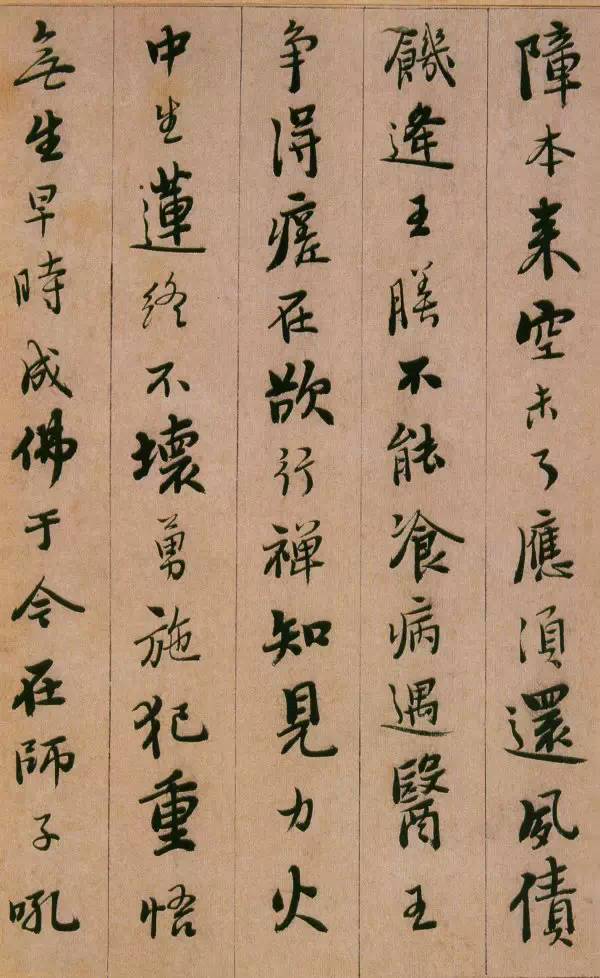 障本来空未了應須還夙債
饑逢王膳不能飡病遇醫王
争得瘥在欲行禅知見力火
中生蓮終不壞勇施犯重悟
無生早時成佛于今在師子吼